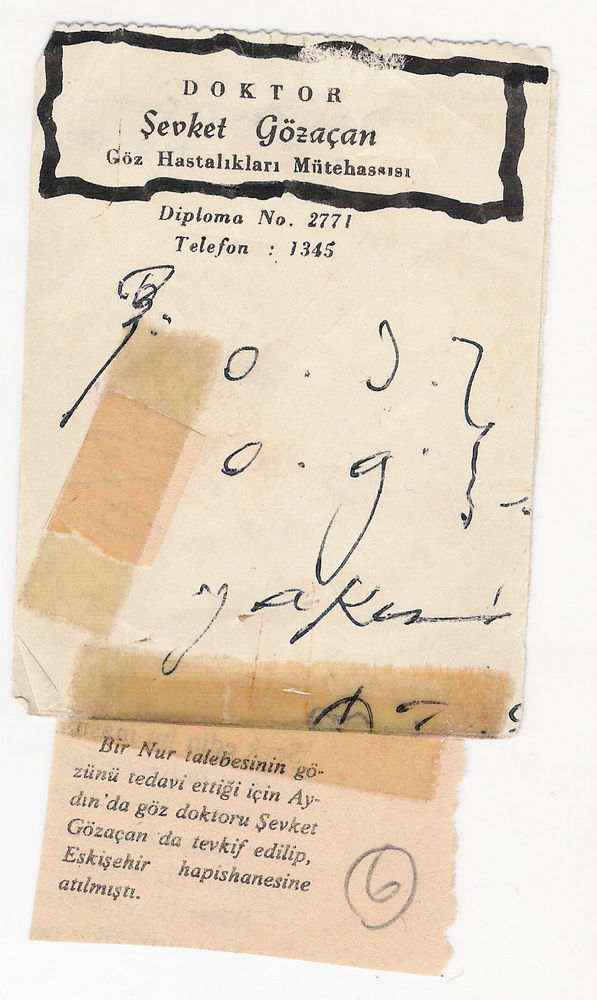 DOKTOR
Şevket Gözaçan
Göz Hastalıkları Mütehassısı
Diploma No. 2771
Telefon : 1345
o . g .
yakın
Bir Nur talebesinin gö-
zünü tedavi ettiği için Ay-
dın'da göz doktoru Şevket
Gözaçan da tevkif edilip,
Eskişehir hapishanesine
atılmıştı.
6